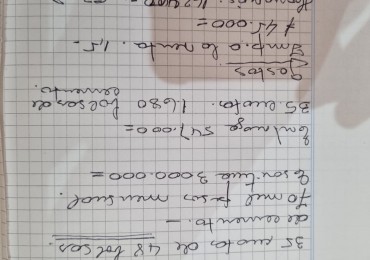 35 cuotas de 48 bolsas.
de cemento. -
70 mil pesos mensual.
Escritura 3000.000 =
Embrague 547.000 =
35 cuotas. 1.680 bolsas de
cemento.
gastos
Imp. a la renta. 1,5 -
45.000 =